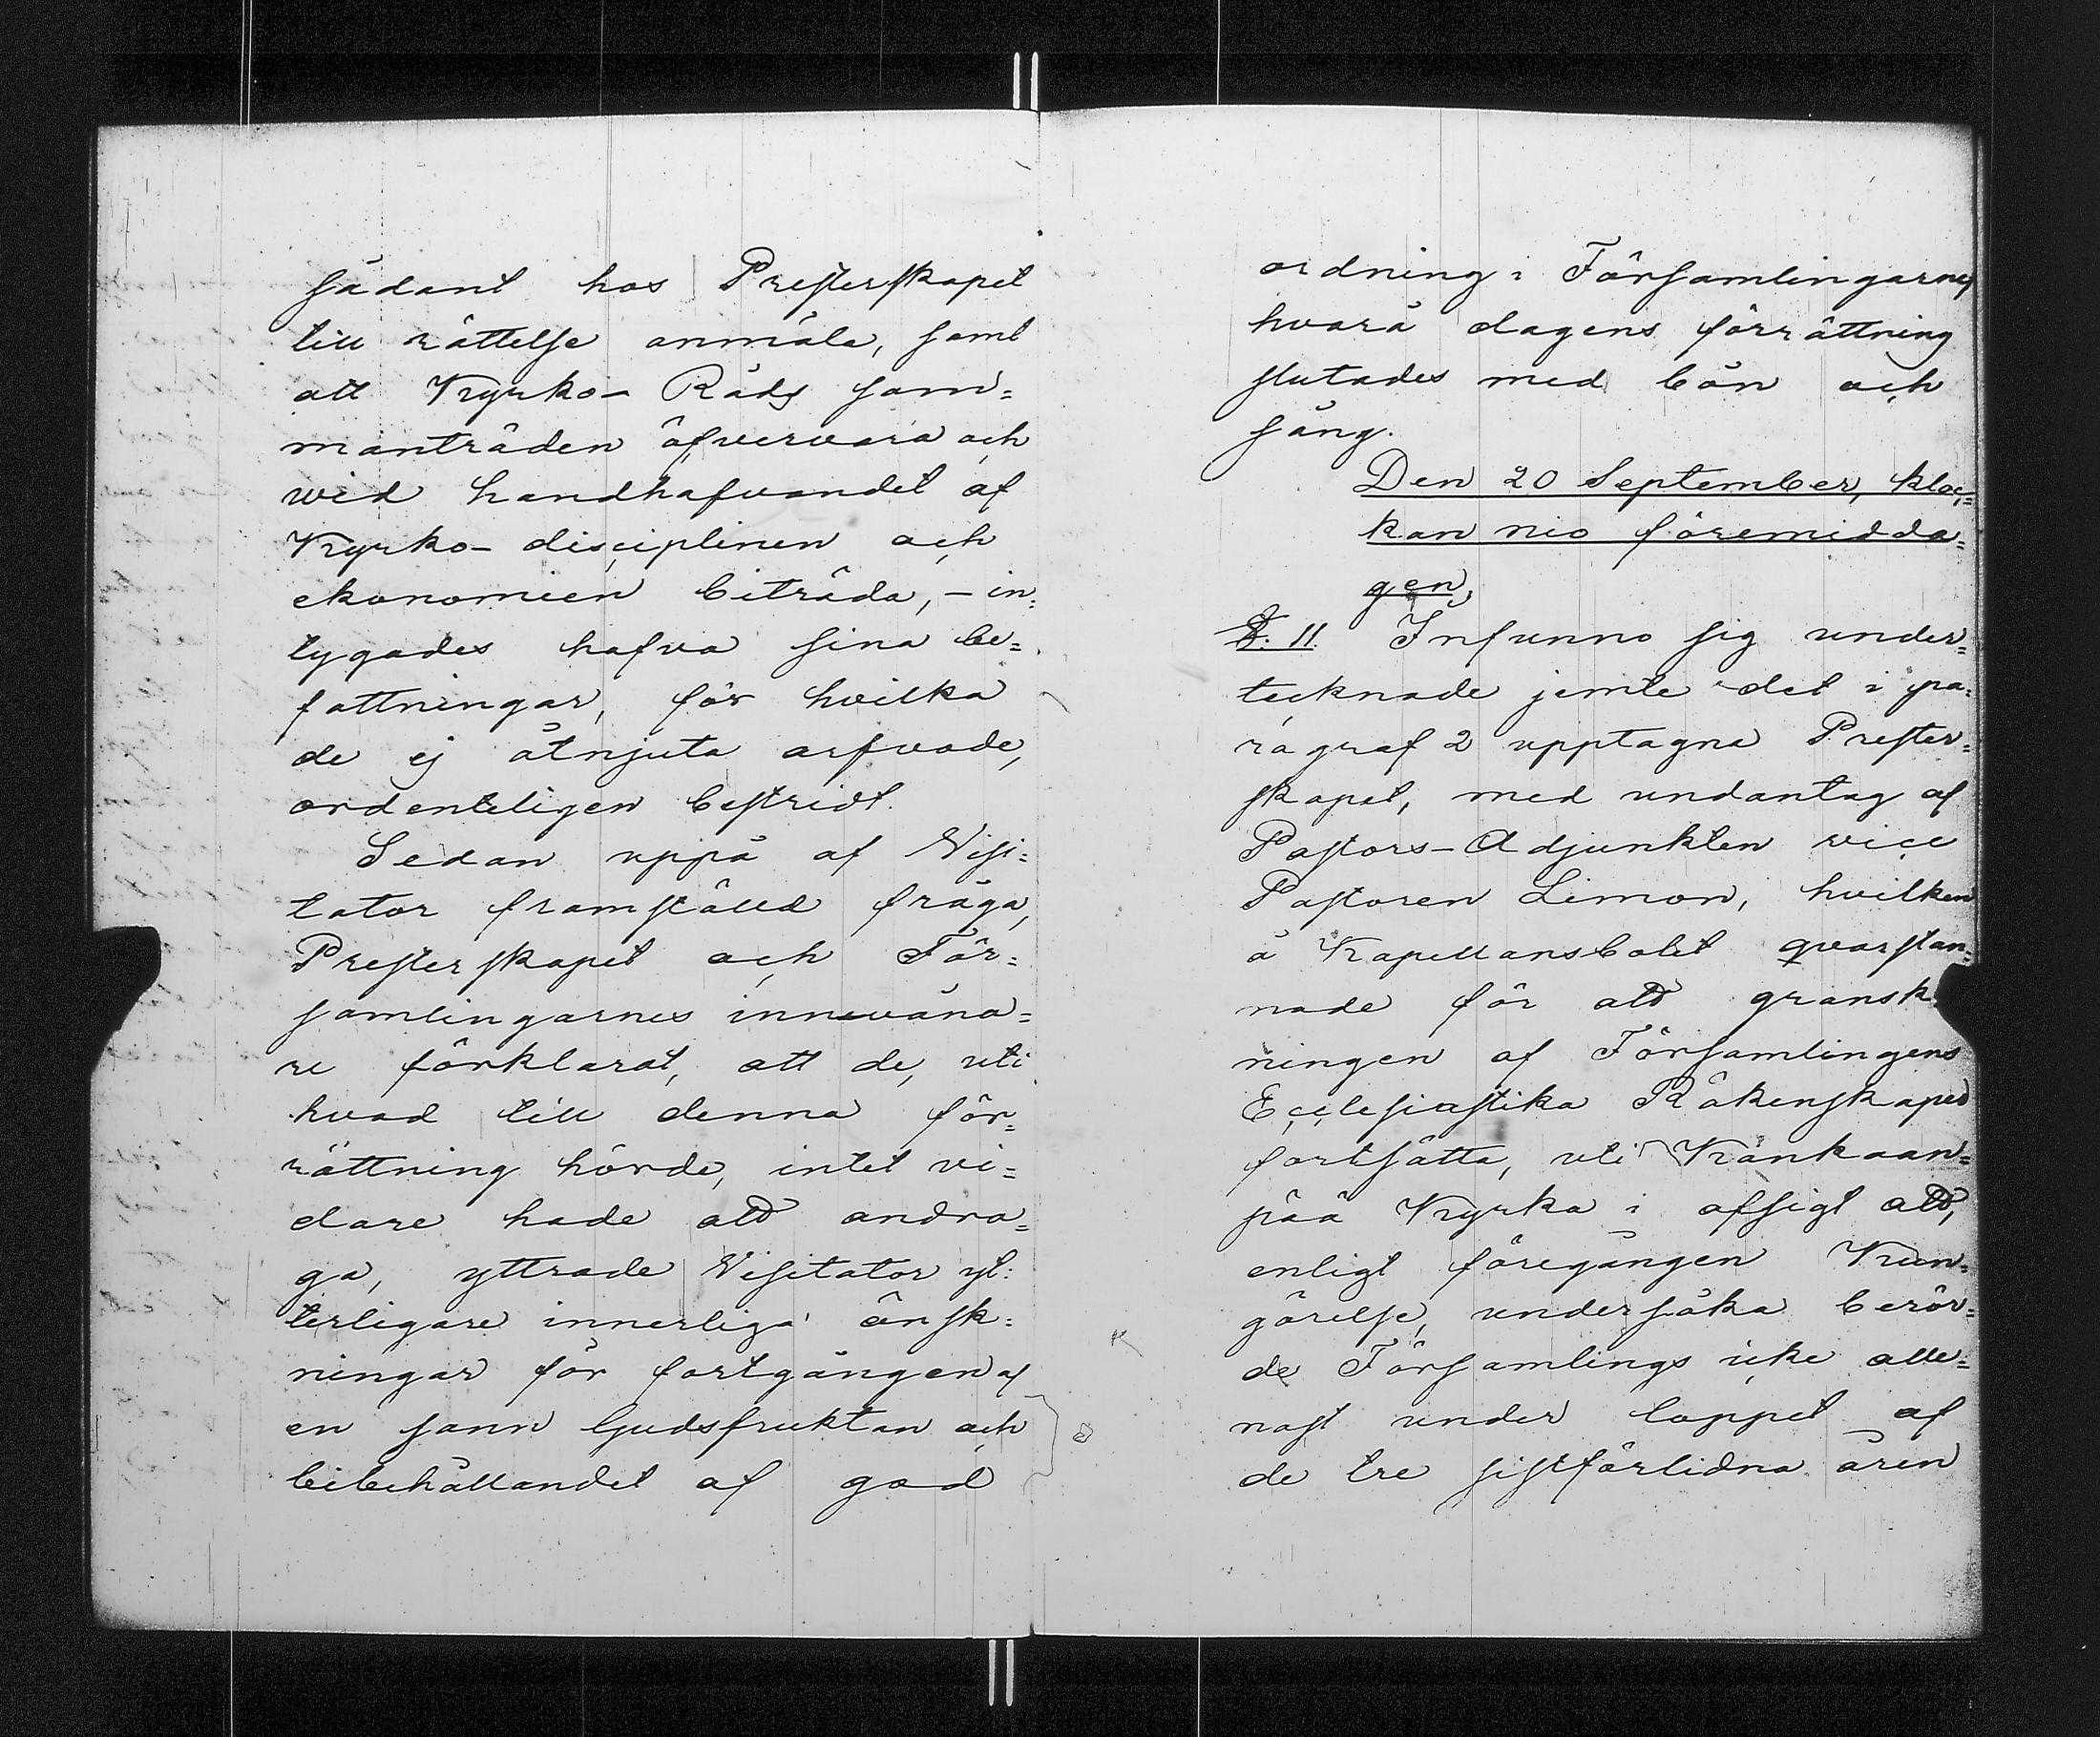 sådant hos Presterskapet
till rättelse anmäla, samt
att Kyrko-Råds sam=
manträden öfvervara och
wid handhafvandet af
Kyrko-disciplinen och
ekonomien biträda, – in=
tygades hafva sina be=
fattningar, för hvilka
de ej åtnjuta arfvode,
ordenteligen bestridt.
Sedan uppå af Visi=
tator framställd fråga,
Presterskapet och För=
samlingarnes innevåna=
re förklarat, att de, uti
hvad till denna för=
rättning hörde, intet vi=
dare hade att andra=
ga, yttrade Visitator yt=
terligare innerliga önsk=
ningar för fortgången af
en sann Gudsfruktan och
bibehållandet af god
ordning i Församlingarne,
hvarå dagens förrättning
slutades med bön och
sång.
Den 20 September, kloc=
kan nio föremidda=
gen,
§. 11. Infunno sig under=
tecknade jemte det i pa=
ragraf 2 upptagna Prester=
skapet, med undantag af
Pastors-Adjunkten vice
Pastoren Limon, hvilken
å Kapellansbolet qvarstan=
nade för att gransk
ningen af Församlingens
Ecclesiastika Räkenskaper
fortsätta, uti Kankaan=
pää Kyrka i afsigt att,
enligt föregången Kun=
görelse, undersöka berör=
de Församlings icke alle=
nast under loppet af
de tre sistförlidna åren